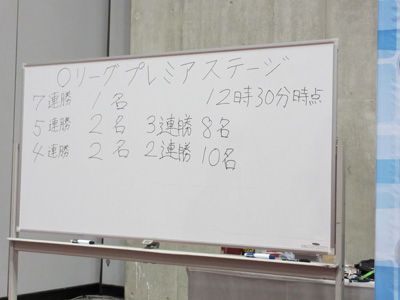 〇リーグプレミアステージ
7連勝 1名 12時30分時点
5連勝 2名 3連勝 8名
4連勝 2名 2連勝 10名